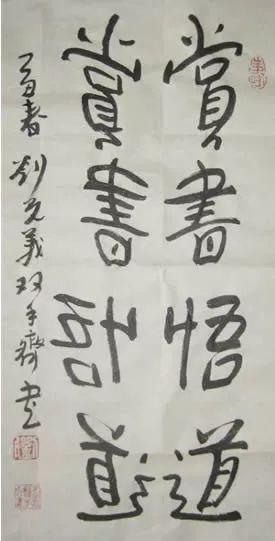 賞書悟道
賞書悟道
春劉義双手齊書